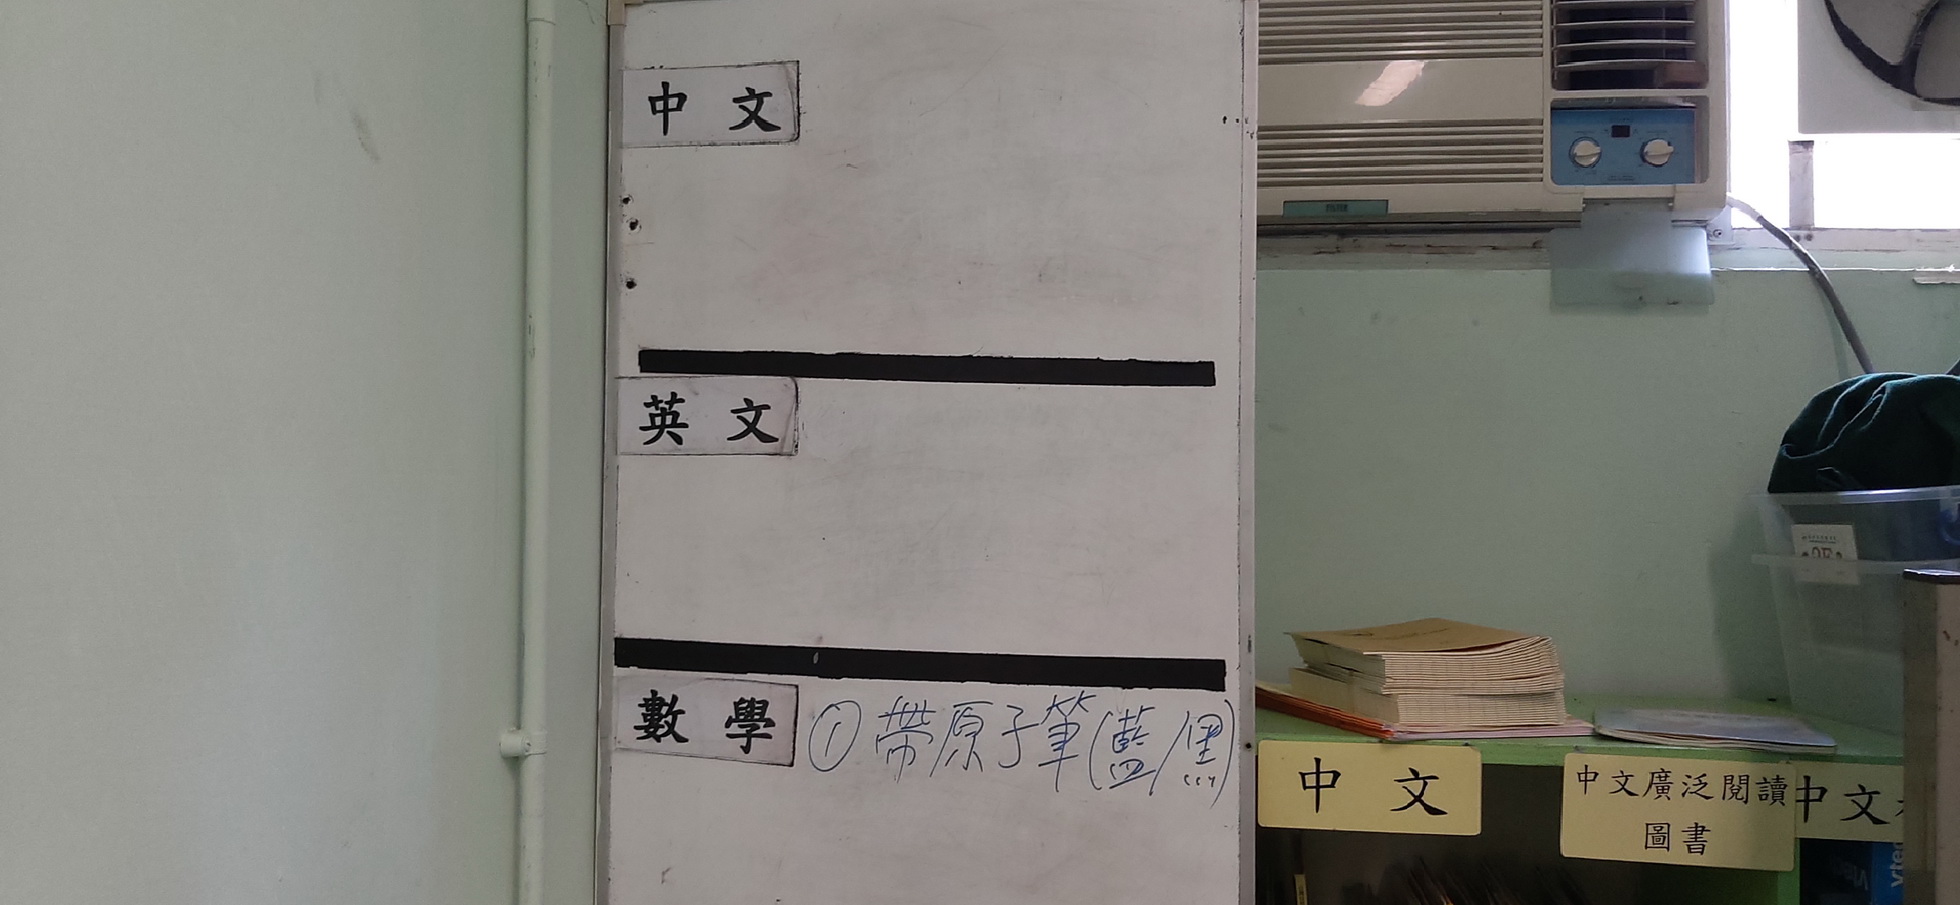 中文
英文
數學 ① 帶原子筆(藍/黑)
中文
中文廣泛閱讀
圖書
中文